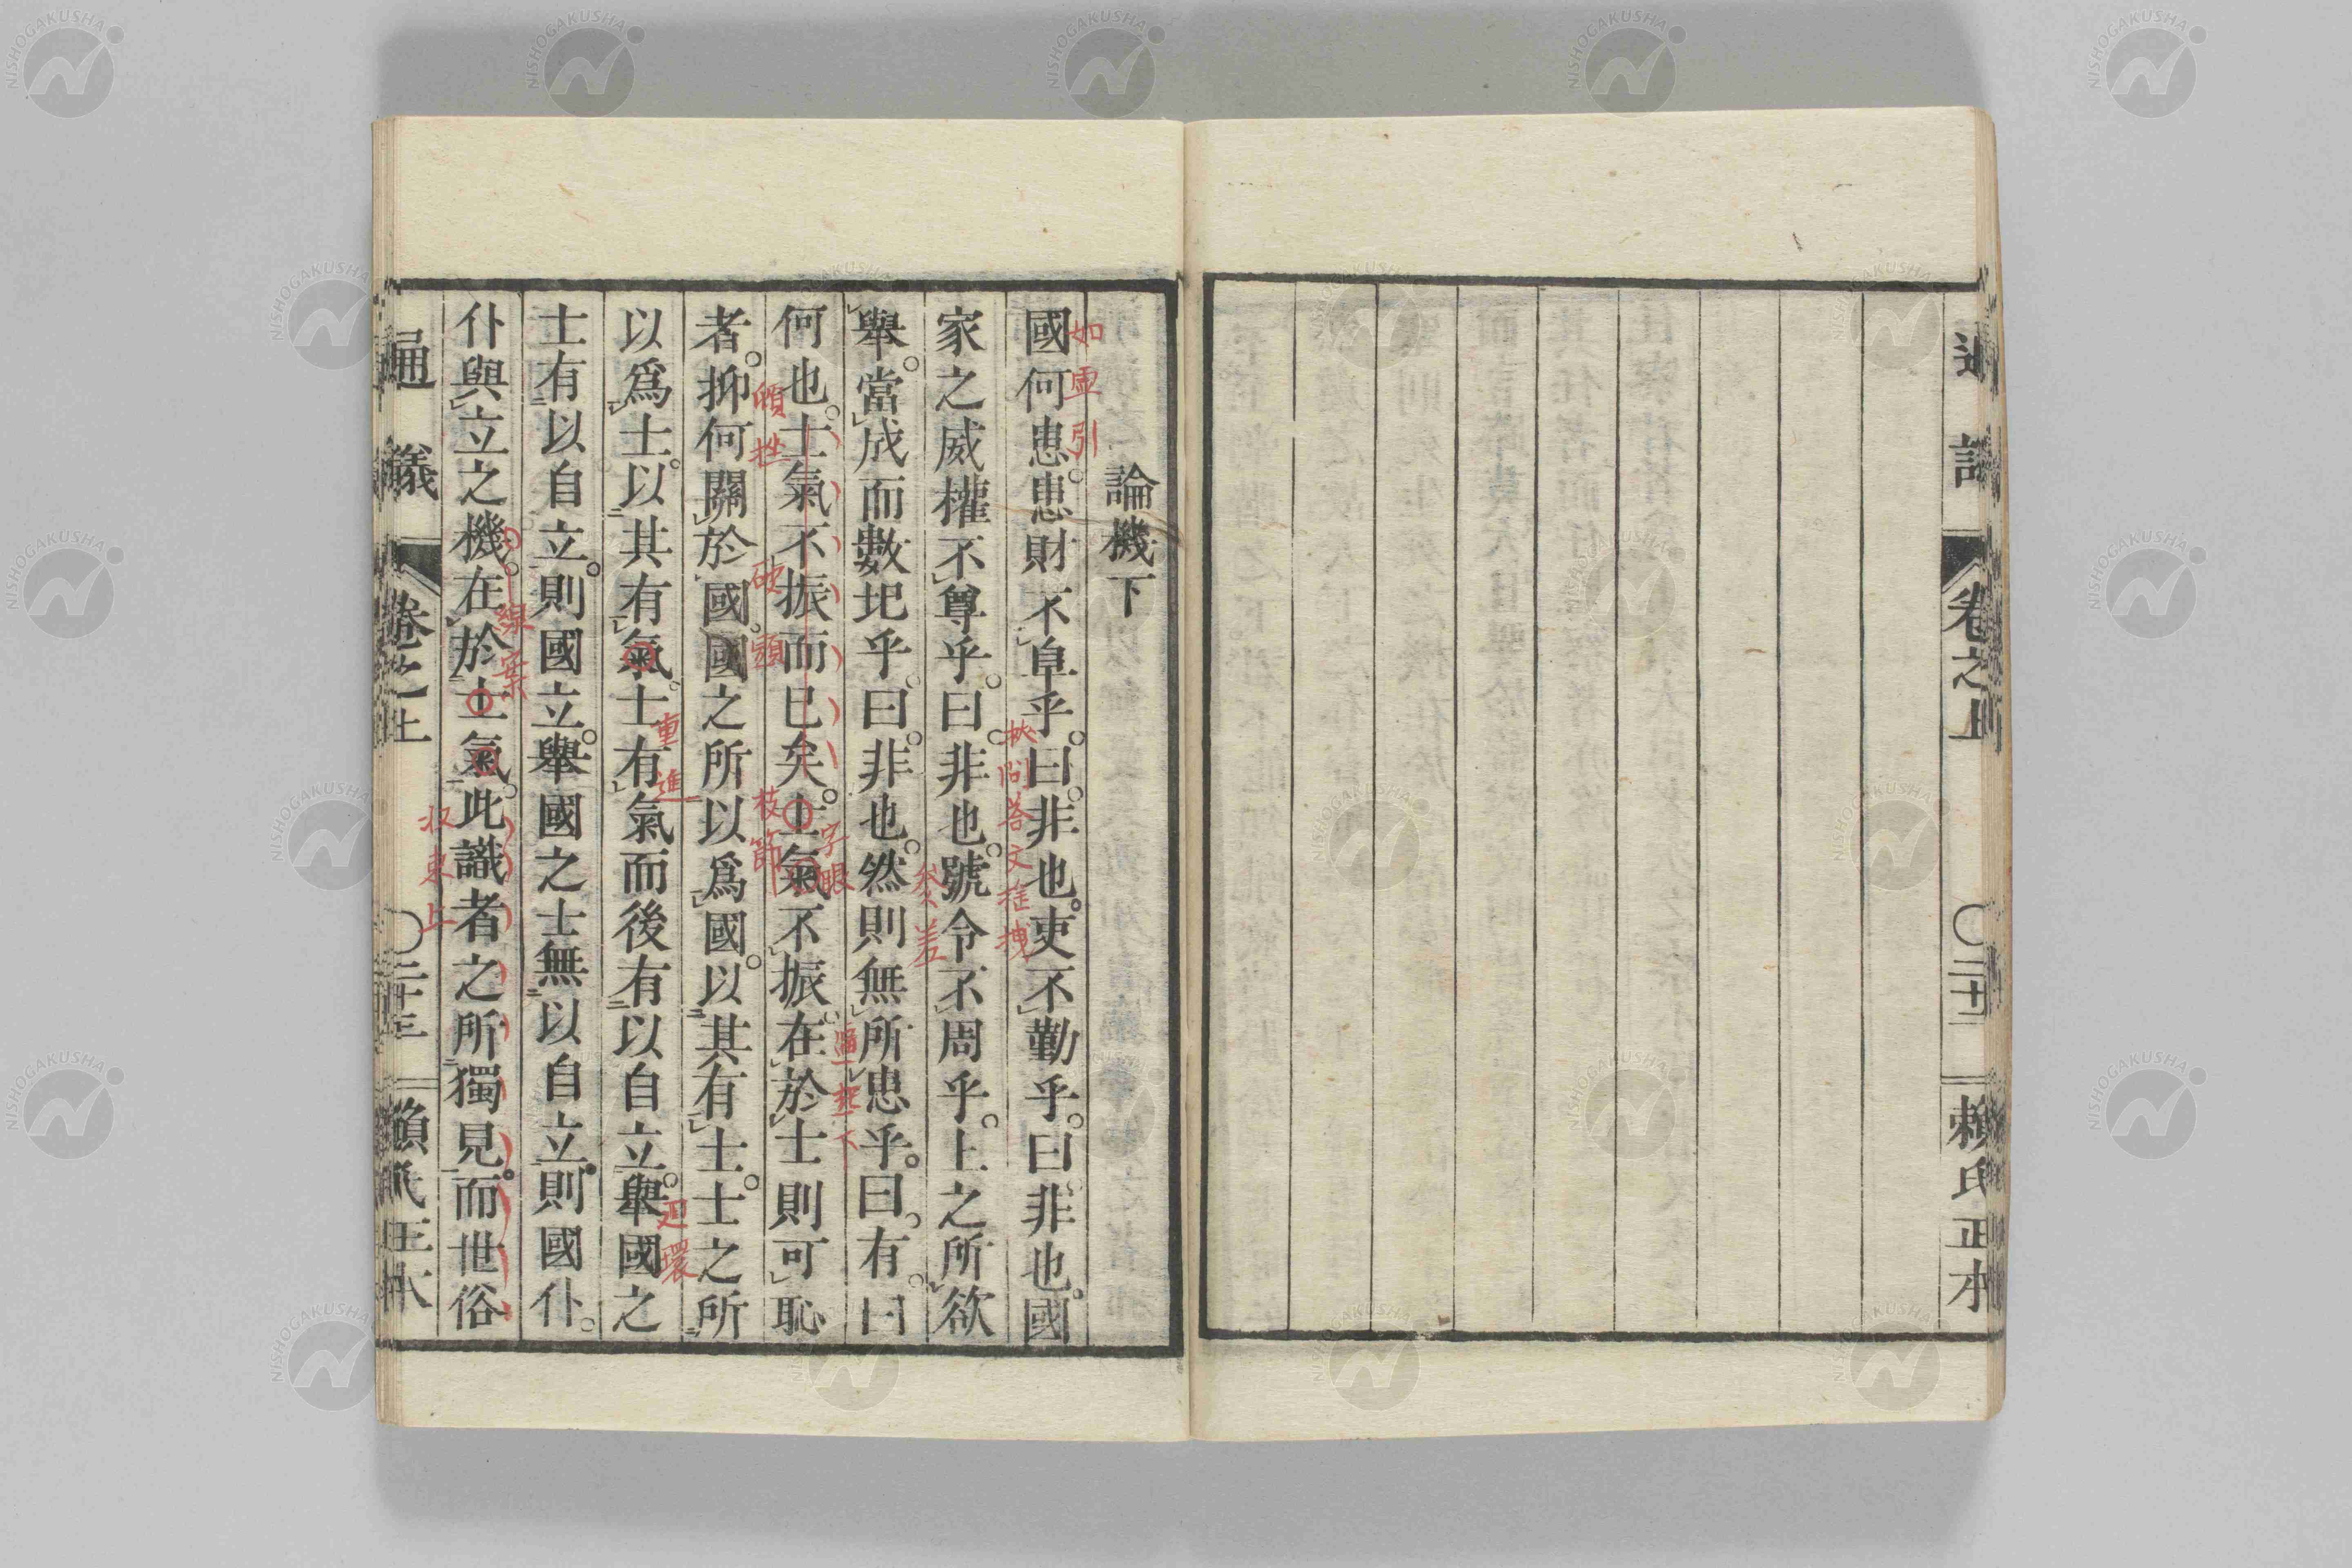 卷之上
二十二
賴氏正本
論機下
國何患。患財不阜乎。曰。非也。吏不勤乎。曰非也。國
如虛引
挾問答文程拽
家之威權不尊乎。曰。非也。號令不周乎。上之所欲
參差
舉。當成而數圮乎。曰。非也。然則無所患乎。曰。有。曰
何也。士氣不振而已矣。士氣不振。在於士則可恥
字眼
者。抑何關於國。國之所以爲國。以其有士。士之所
頓挫
硬頭
枝節
以爲士。以其有氣。士有氣而後有以自立。舉國之
重進
迴環
士有以自立。則國立。舉國之士無以自立。則國仆。
仆與立之機。在於士氣。此識者之所獨見。而世俗
線案
收束上
通議
卷之上
二十三
賴氏正本
NISHOGAKUSHA